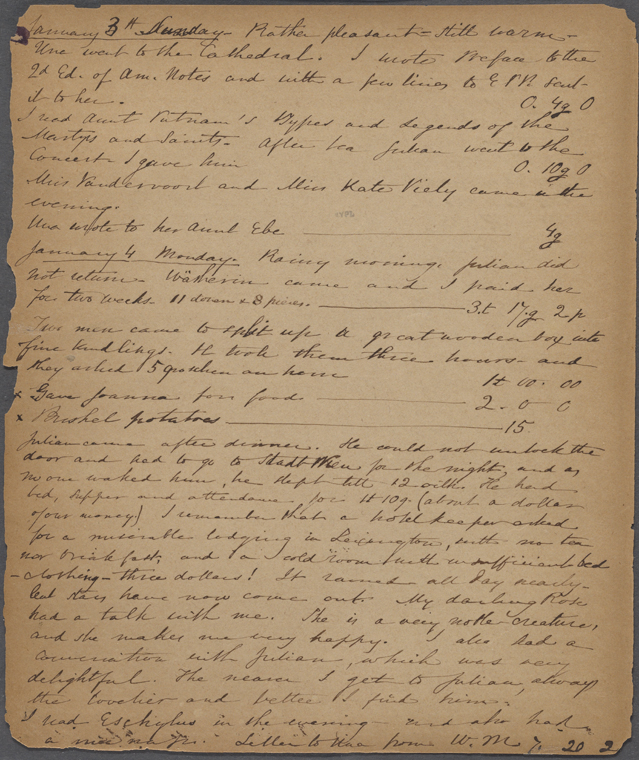 January 3d Sunday - Rather pleasant - still warm -
Una went to the Cathedral. I wrote Preface to the
2d Ed. of Am. Notes and with a few lines to E P P. sent
it to her. 0. 4g 0
I read Aunt Putnam's Types and Legends of the
Martyrs and Saints. After tea Julian went to the
Concert I gave him 0. 10g 0
Miss Vandervoort and Miss Kate Viely came in the
evening.
Una wrote to her Aunt Ebe 4g
January 4 Monday. Rainy morning. Julian did
not return. Wäscherin came and I paid her
for two weeks 11 dozen & 8 pieces. 3.t 17.g 2 p
Two men came to split up a great wooden box into
fine kindlings. It took them three hours - and
they asked 5 groschen an hour 1t 00. 00
x Gave Joanna for food 2. 0 0
x Bushel potatoes 15.
Julian came after dinner. He could not unlock the
door and had to go to Stadt Wien for the night, and as
no one waked him, he slept till 12 oclk. He had
bed, supper and attendance for 1t 10g. (about a dollar
of our money). I remember that a hotel keeper asked
for a miserable lodging in Lexington, with no tea
nor breakfast, and a cold room with insufficient bed
- clothing - three dollars! It rained all day nearly -
but stars have now come out. My darling Rose
had a talk with me. She is a very noble creature,
and she makes me very happy. I also had a
conversation with Julian, which was very
delightful. The nearer I get to Julian, always
the lovelier and better I find him.
I read Eschylus in the evening - and also had
a Letter to Una from W. M. 7. 20 2